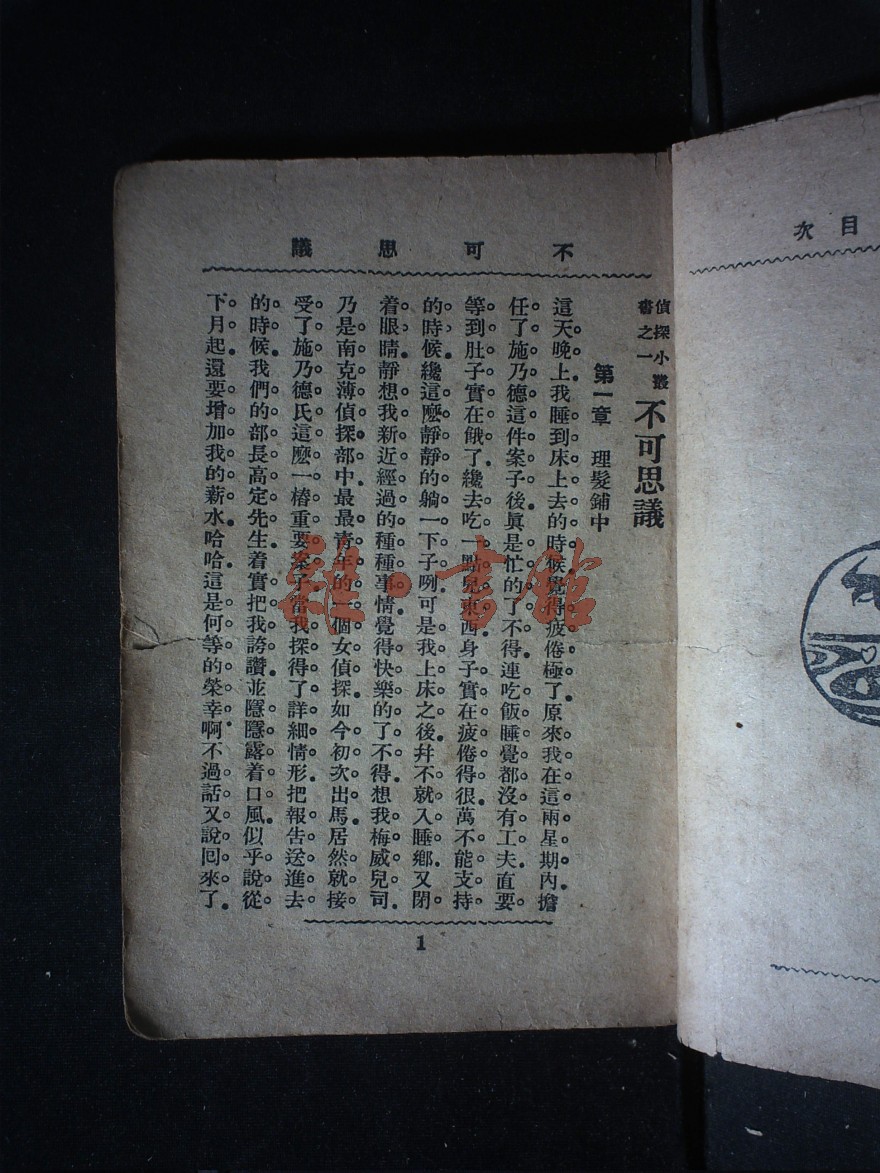 不可思議
偵探小叢
書之一
不可思議
第一章　理髮鋪中
這天晚上。我睡到床上去的時候。覺得疲倦極了。原來我在這兩星期內。擔
任了施乃德這件案子後。眞是忙的了不得。連吃飯睡覺都沒有工夫。直要
等到肚子實在餓了。纔去吃一點兒東西。身子實在疲倦得很。萬不能支持
的時候。纔這麽靜靜的躺一下子咧。可是我上床之後。幷不就入睡鄉。又閉
着眼睛。靜想我新近經過的種種事情。覺得快樂的了不得。想我梅威兒司。
乃是南克薄偵探部中。最最青年的一個女偵探。如今初次出馬。居然就接
受了施乃德氏這麽一樁重要案子。當我探得了詳細情形。把報告送進去
的時候。我們的部長高定先生。着實把我誇讚。並隱隱露着口風。似乎說從
下月起。還要增加我的薪水。哈哈。這是何等的榮幸啊。不過話又說囘來了。
1
目次
雜·書館